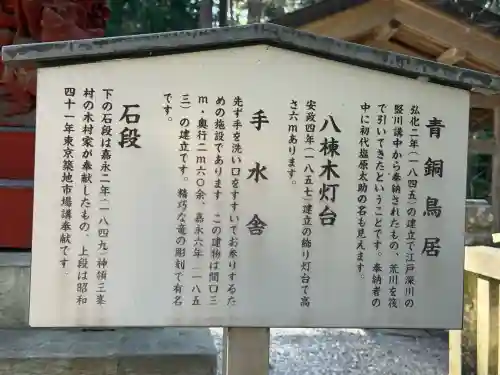 青銅鳥居
弘化二年(一八四五)の建立で江戸深川の
竪川講中から奉納されたもの、荒川を筏
で引いてきたということです。奉納者の
中に初代塩原太助の名も見えます。
八棟木灯台
安政四年(一八五七)建立の飾り灯台で高
さ六mあります。
手水舎
先ず手を洗い口をすすいでお参りするた
めの施設であります この建物は間口三
m・奥行二m六〇余、嘉永六年(一八五
三)の建立です。精巧な竜の彫刻で有名
です。
石段
下の石段は嘉永二年(一八四九)神領三峯
村の木村家が奉献したもの、上段は昭和
四十一年東京築地市場講奉献です。